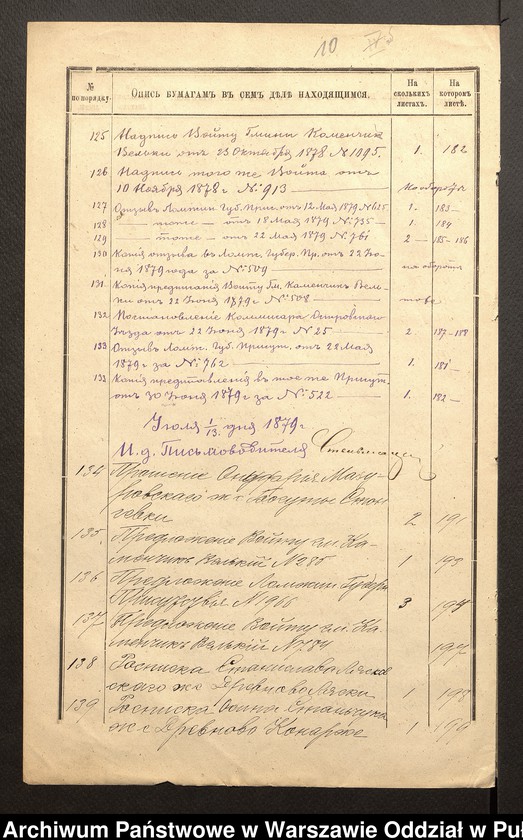 10
№ по порядку.
Опись бумагамъ въ семъ дѣлѣ находящимся.
На сколькихъ листахъ.
На которомъ листѣ.
125 Надпись Войту Гмины Каменчик
Вельки отъ 23 Октября 1878 № 1095. 1. 182
126 Надпись того же Войта отъ
10 Ноября 1878 г № 913 — на оборотѣ
127 Отзывъ Ломжин. Губ. Прис. отъ 12 Мая 1879 № 625 1- 183-
128 — тоже — отъ 18 Мая 1879 № 735 — 1. 184
129 — тоже — отъ 22 Мая 1879 № 761 2 — 185-186
130 Копія отзыва въ Ломж. Губер. Пр. отъ 22 Iю-
ня 1879 года за № 509 — на оборотѣ
131. Копія предписанія Войту Гм. Каменчик Вель-
ки отъ 22 Iюня 1879 г № 508 —
132. Постановленіе Коммисара Островскаго
Уѣзда отъ 22 Iюня 1879 г № 25 — 2. 187-188
133 Отзывъ Ломж. Губ. Присут. отъ 28 Мая
1879 г за № 762 — 1. 181 —
133. Копія представленія въ тоже Присут.
отъ 30 Iюня 1879 г за № 522 — 1. 182 —
Iюля 1/13. дня 1879 г
И. д. Письмоводителя
134 Прошение Мазу-
ровскаго ж. с.
2 191
135. Предложение Войту гм. Ка-
менчикъ Велькій № 285 1 193
136 Предложение Ломжин. Губерн
Присутствія № 1966 3 194
137 Предложение Войту гм. Ка-
менчикъ Велькій № 784 197
138 Росписка Станислава
скаго ж с Древново Ляски 1 198
139 Росписка
ж. с Древново Конарже 1 199
Archiwum Państwowe w Warszawie Oddział w Pu